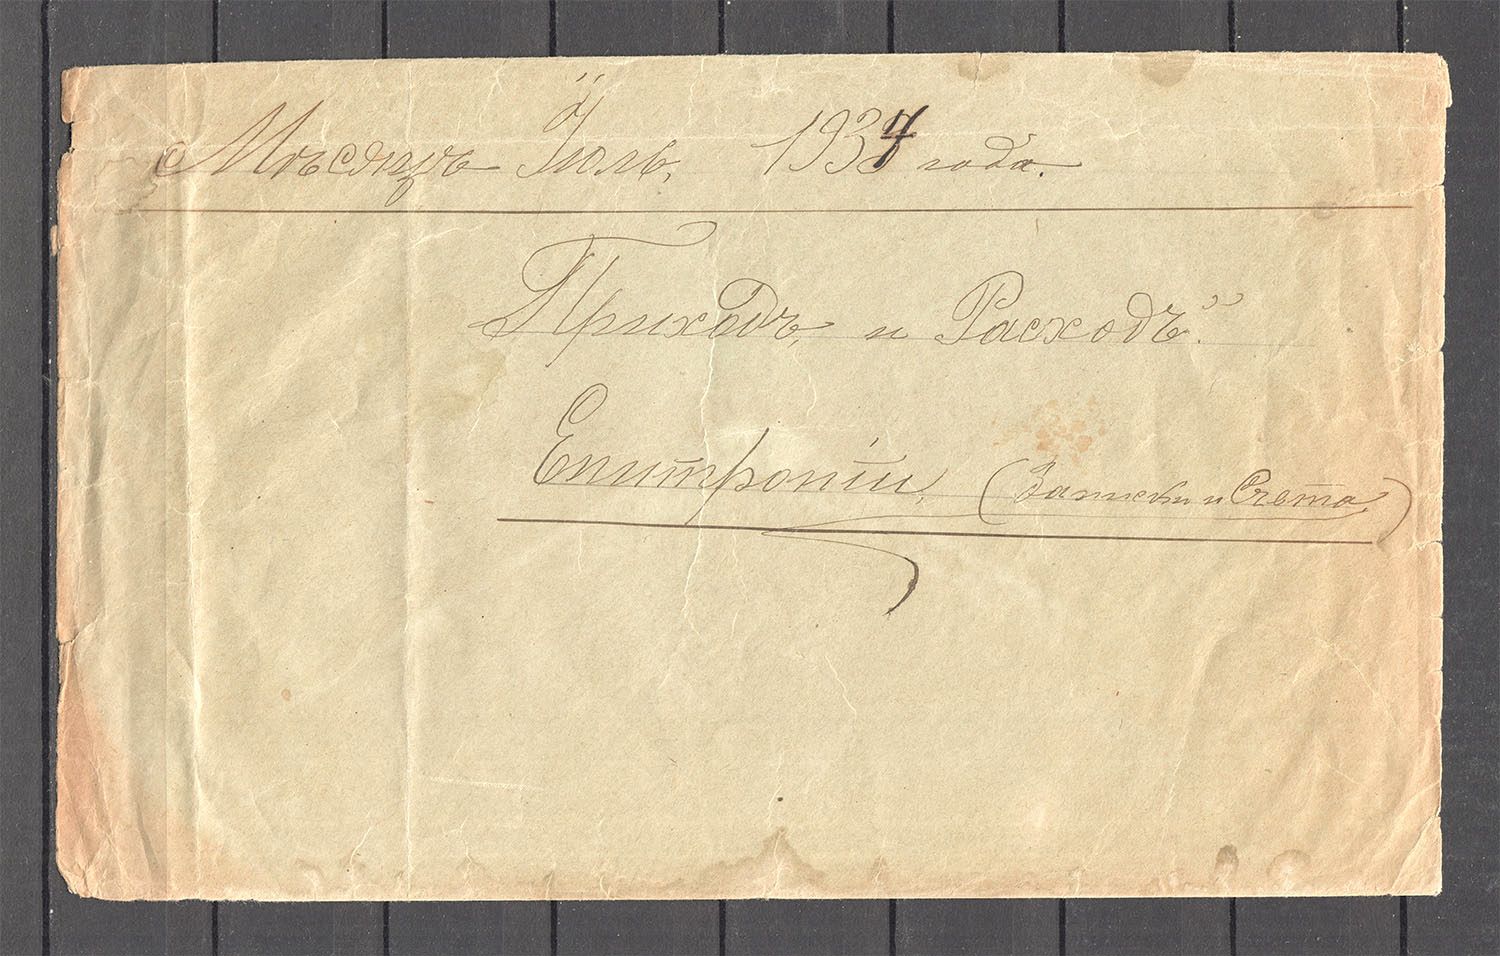 Мѣсяцъ Іюль, 1934 года.
Приходъ, и Расходъ."
Епитропіи, (Записки и Счета.)